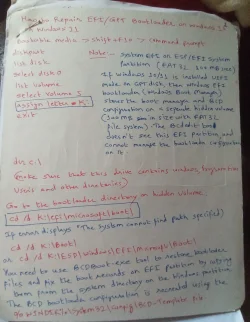 How to Repair EFI/GPT Bootloader on windows 10
or windows 11
Bootable media → shift+F10 → command prompt
diskpart
list disk
select disk 0
list volume
select volume 5
assign letter=K:
exit
Note:- system EFS on ESP/EFI System
partition (FAT 32
If windows 10/11 is installed UEFI
mode on GPT disk, then during EFI
bootloader (windows Boot Manager)
stores the boot manager and BCD
configuration on a separate hidden volume
(100 MB in size with FAT 32
file system). The BCDedit
doesn't see this EFI partition and
cannot manage the bootloader configuration
on it.
dir c:\
(make sure that this drive contains windows, program files
Users and other directories)
Go to the bootloader directory on hidden volume
cd /d K:\efi\microsoft\boot\
If error displays "The system cannot find path specified)
cd /d K:\Boot\
or cd /d K:\ESD\Windows\EFI\Microsoft\Boot\
You need to use BCDBoot.exe tool to restore bootloader
files and fix the boot records on EFI partition by copying
them from the system directory on the windows partition
The BCD bootloader configuration is recreated using the
%WINDIR%\System32\config\BCD-Template file